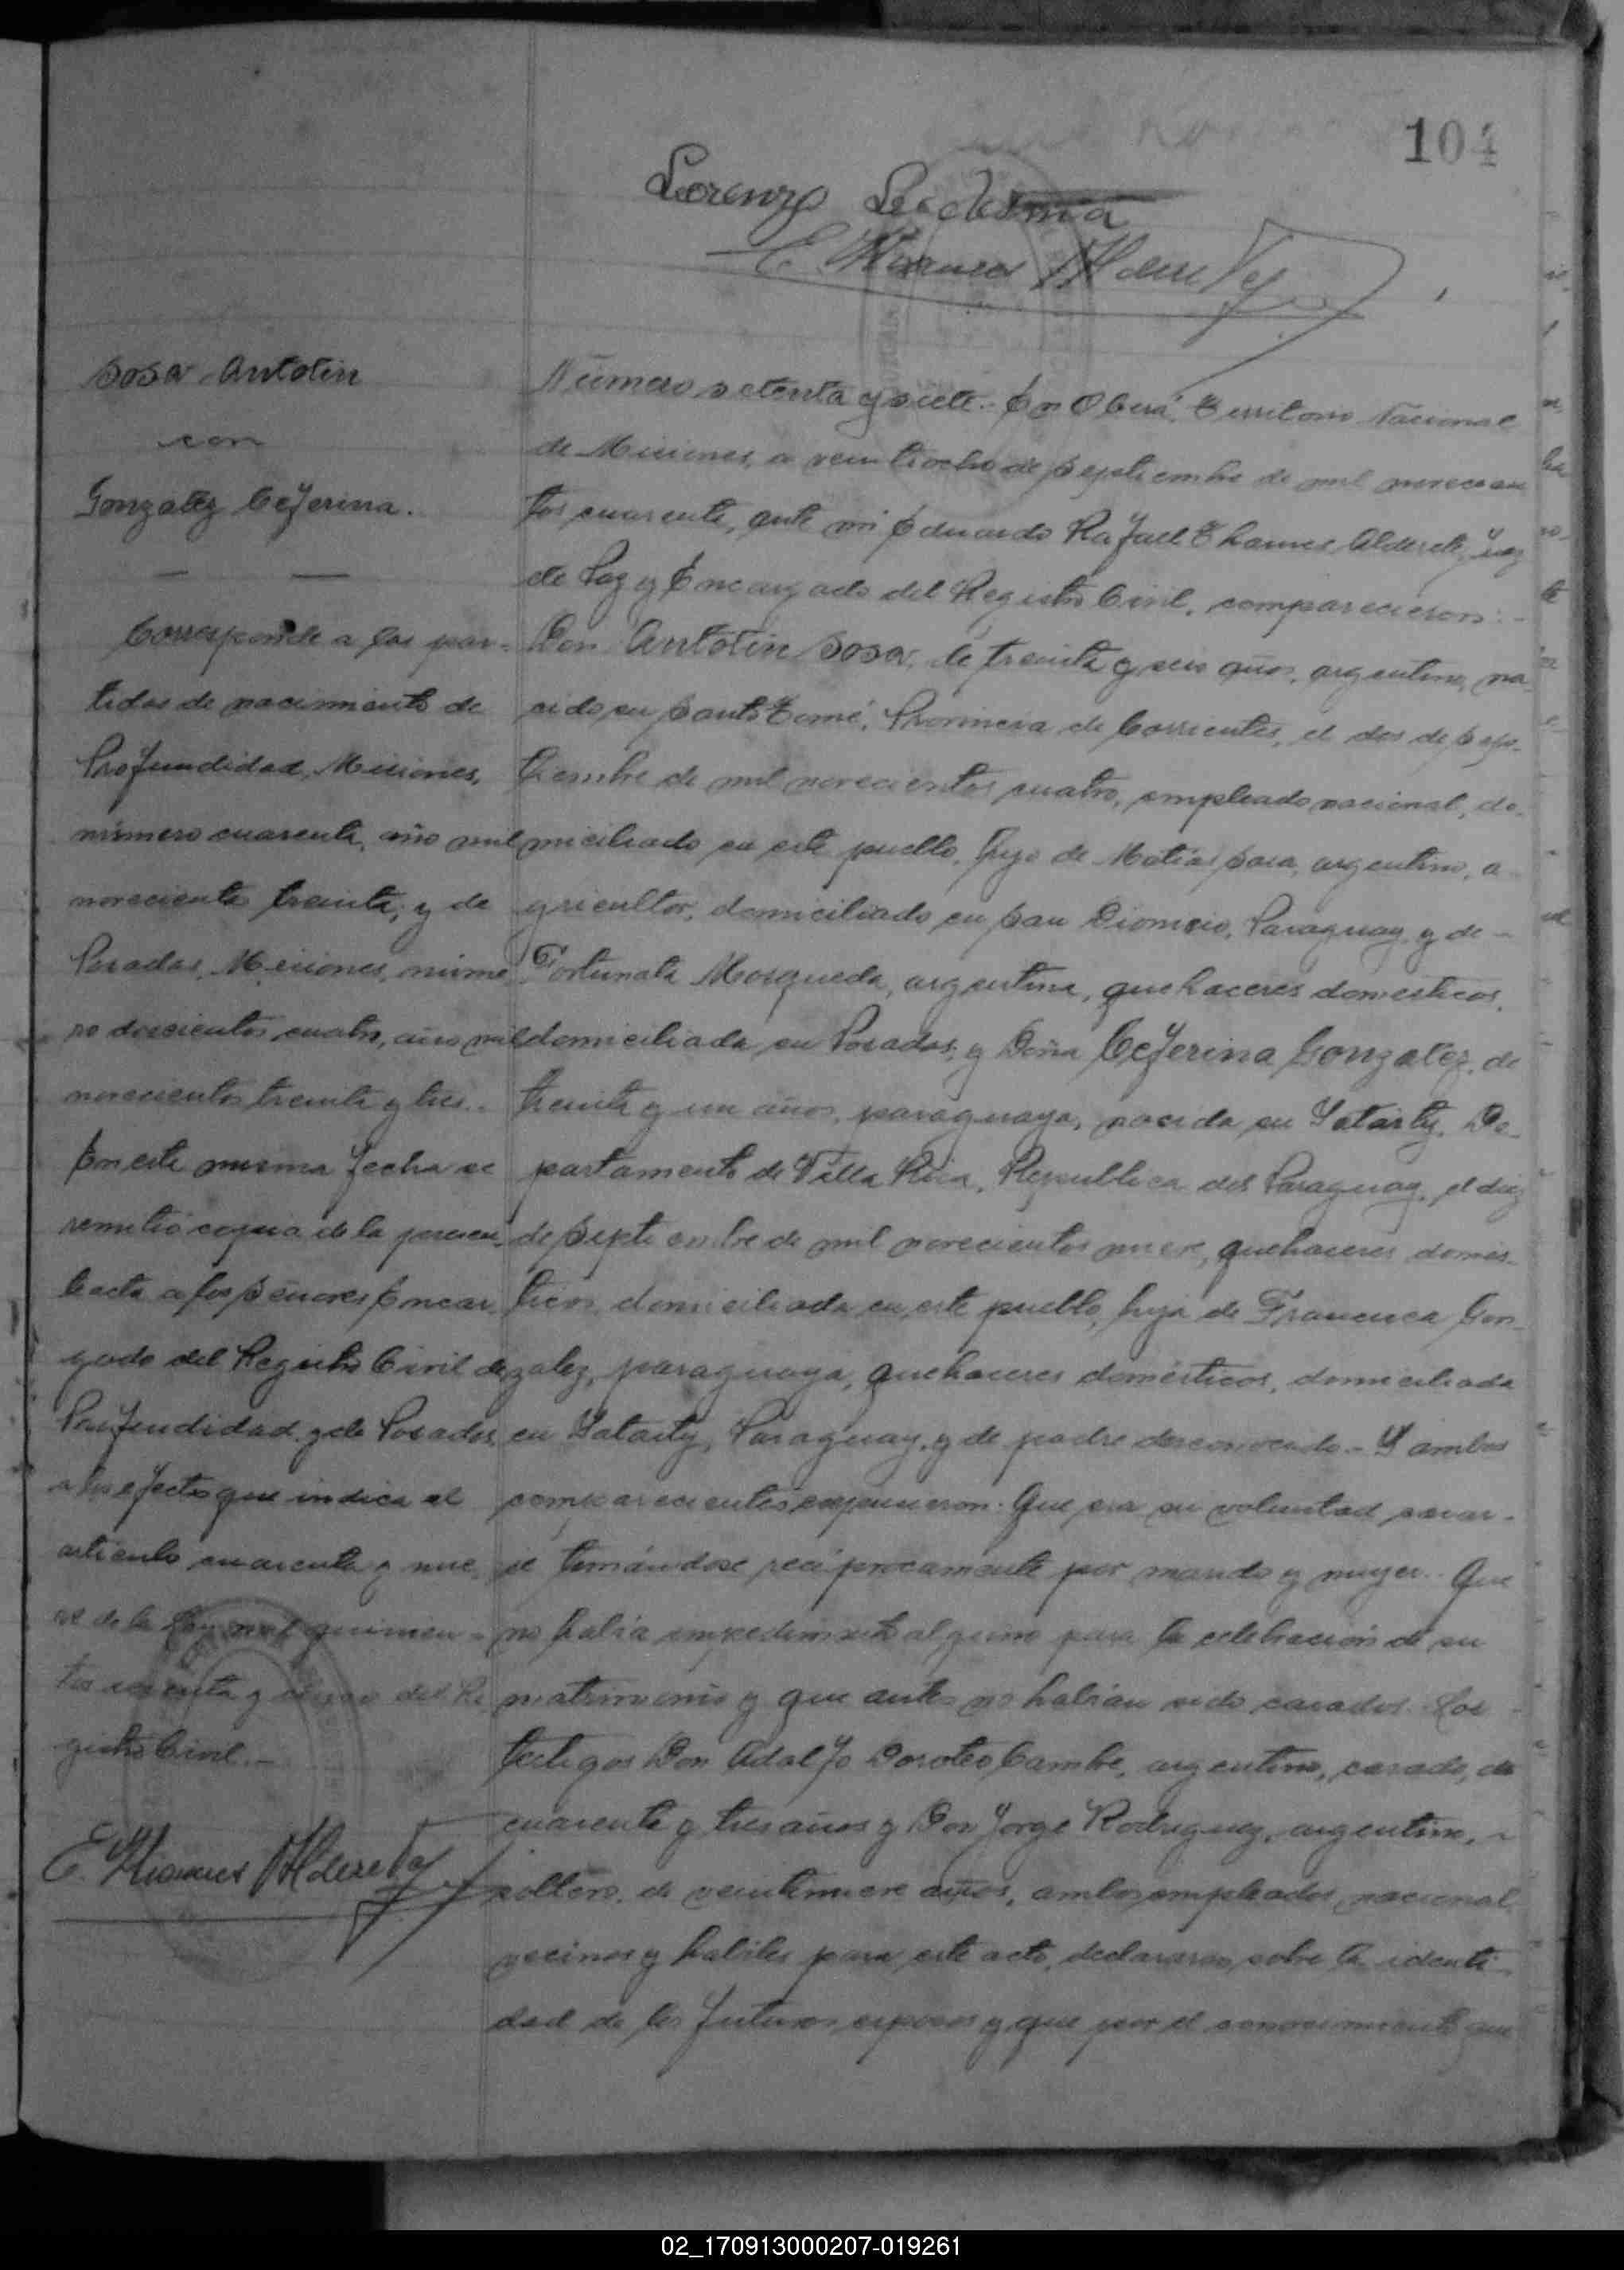 104
Lorenzo Ledesma
E. Thames Alderete
Sosa Antolin
con
Gonzalez Ceferina.
Corresponde a las par-
tidas de nacimiento de
Profundidad, Misiones,
número cuarenta, año mil
novecientos treinta, y de
Posadas, Misiones, núme
ro doscientos cuatro, año mil
novecientos treinta y tres.-
En esta misma fecha se
remitió copia de la presen-
te acta a los Señores Encar
gado del Registro Civil de
Profundidad y de Posadas,
a los efectos que indica el
artículo cuarenta y nue-
ve de la Ley mil quinien-
tos sesenta y cinco del Re
gistro Civil.-
E. Thames Alderete
Número setenta y siete.- En Oberá, Territorio Nacional
de Misiones, a veintiocho de Septiembre de mil novecien
tos cuarenta, ante mi Eduardo Rafael Thames Alderete, Juez
de Paz y Encargado del Registro Civil, comparecieron:-
Don Antolin Sosa, de treinta y seis años, argentino, na-
cido en Santo Tomé, Provincia de Corrientes, el dos de Sep-
tiembre de mil novecientos cuatro, empleado nacional, do-
miciliado en este pueblo, hijo de Matías Sosa, argentino, a-
gricultor, domiciliado en San Dionicio, Paraguay y de-
Fortunata Mosqueda, argentina, quehaceres domesticos,
domiciliada en Posadas; y Doña Ceferina Gonzalez, de
treinta y un años, paraguaya, nacida en Yataity, De-
partamento de Villa Rica, Republica del Paraguay, el diez
de Septiembre de mil novecientos nueve, quehaceres domés-
ticos, domiciliada en este pueblo, hija de Francisca Gon-
zalez, paraguaya, quehaceres domésticos, domiciliada
en Yataity, Paraguay, y de padre desconocido.- Y ambos
comparecientes expusieron: Que era su voluntad casar-
se tomándose recíprocamente por marido y mujer.- Que
no había impedimento alguno para la celebración de su
matrimonio y que antes no habían sido casados. Los
testigos Don Adolfo Doroteo Cambre, argentino, casado, de
cuarenta y tres años y Don Jorge Rodriguez, argentino,-
soltero, de veintinueve años, ambos empleados nacional
vecinos y habiles para este acto, declararon sobre la identi-
dad de los futuros esposos y que por el conocimiento que
02_170913000207-019261